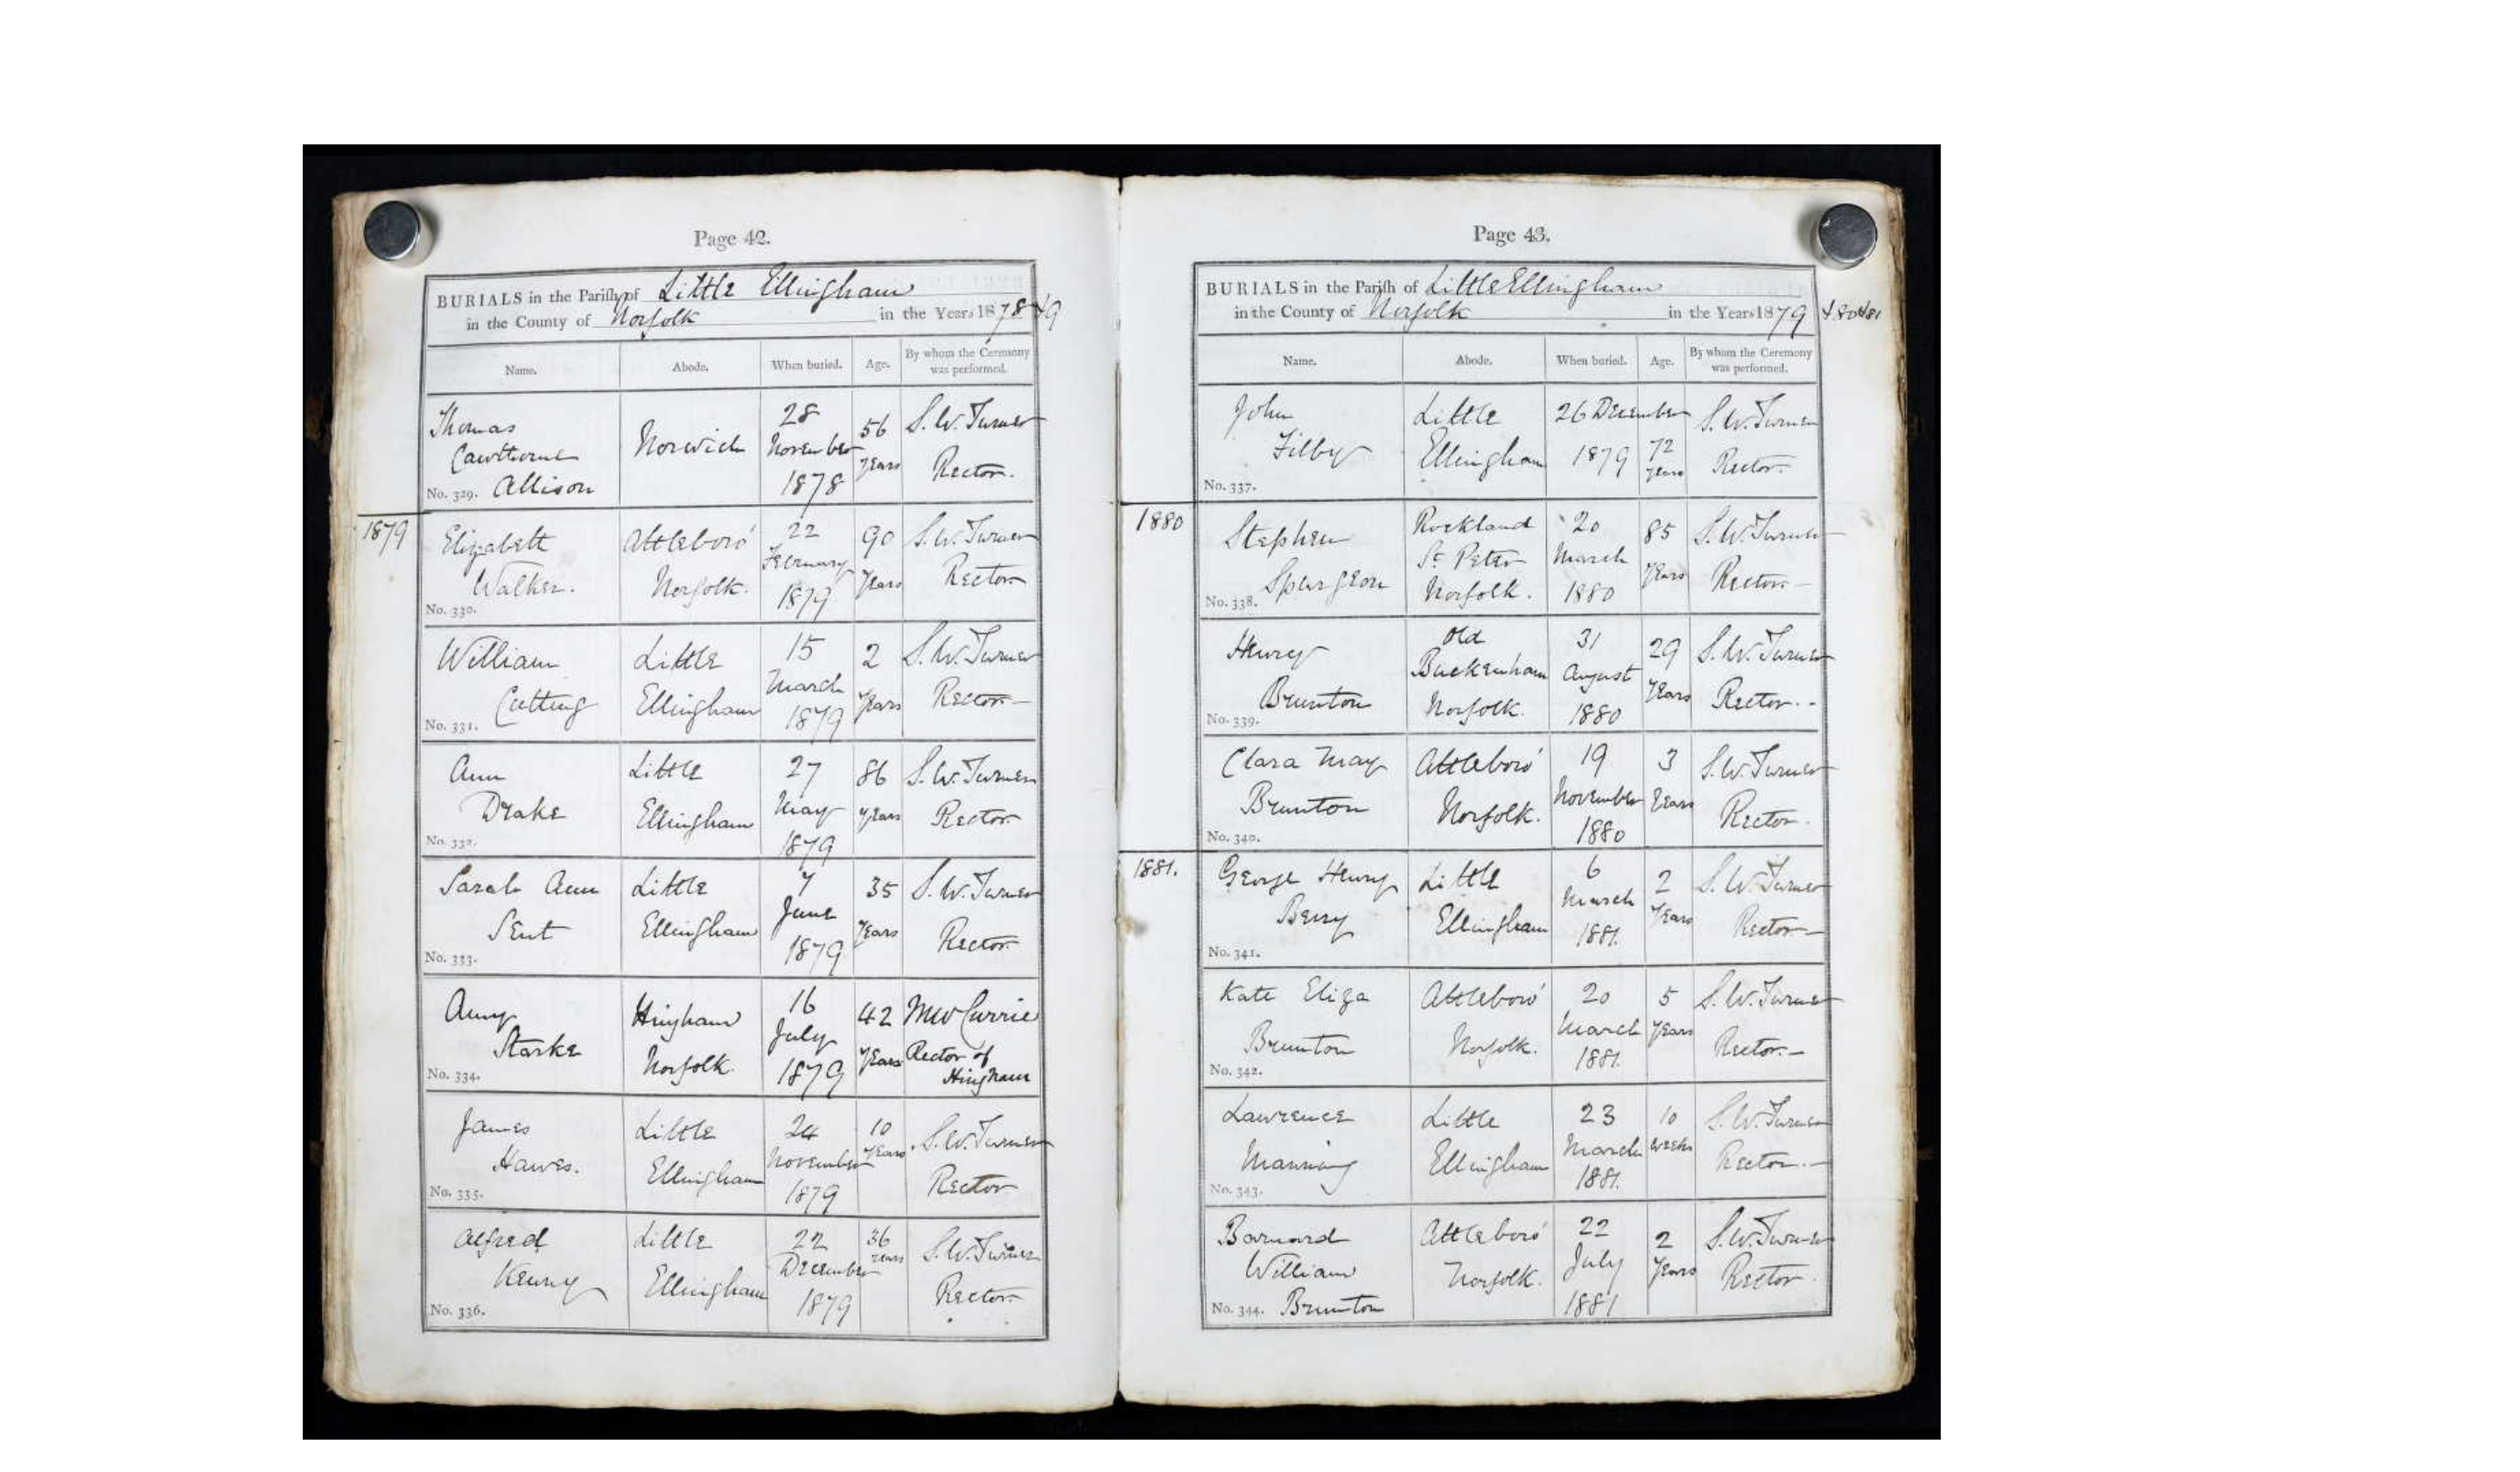 Page 42.
BURIALS in the Parish of Little Ellingham
in the County of Norfolk in the Years 1878 & 9
Name. Abode. When buried. Age. By whom the Ceremony was performed.
Thomas Norwich 28 56 S. W. Turner
Cawthorne November years Rector.
No. 329. Allison 1878
1879
Elizabeth Attleboro' 22 90 S. W. Turner
Walker. Norfolk. February years Rector
No. 330. 1879
William Little 15 2 S. W. Turner
Cutting Ellingham March years Rector
No. 331. 1879
Ann Little 27 86 S. W. Turner
Drake Ellingham May years Rector
No. 332. 1879
Sarah Ann Little 7 35 S. W. Turner
Sent Ellingham June years Rector
No. 333. 1879
Amy Hingham 16 42 MW Currie
Starke Norfolk. July years Rector of
No. 334. 1879 Hingham
James Little 24 10 S. W. Turner
Hawes. Ellingham November years Rector
No. 335. 1879
Alfred Little 22 36 S. W. Turner
Kenny Ellingham December years Rector
No. 336. 1879
Page 43.
BURIALS in the Parish of Little Ellingham
in the County of Norfolk in the Years 1879 & 80 & 81
Name. Abode. When buried. Age. By whom the Ceremony was performed.
John Little 26 December 72 S. W. Turner
Filby Ellingham 1879 years Rector.
No. 337.
1880
Stephen Rockland 20 85 S. W. Turner
Spurgeon St. Peter March years Rector
No. 338. Norfolk. 1880
Henry Old 31 29 S. W. Turner
Brunton Buckenham August years Rector
No. 339. Norfolk. 1880
Clara May Attleboro' 19 3 S. W. Turner
Brunton Norfolk. November years Rector
No. 340. 1880
1881.
George Henry Little 6 2 S. W. Turner
Berry Ellingham March years Rector
No. 341. 1881.
Kate Eliza Attleboro' 20 5 S. W. Turner
Brunton Norfolk. March years Rector
No. 342. 1881.
Lawrence Little 23 10 S. W. Turner
Manning Ellingham March weeks Rector
No. 343. 1881.
Barnard Attleboro' 22 2 S. W. Turner
William Norfolk. July years Rector
No. 344. Brunton 1881